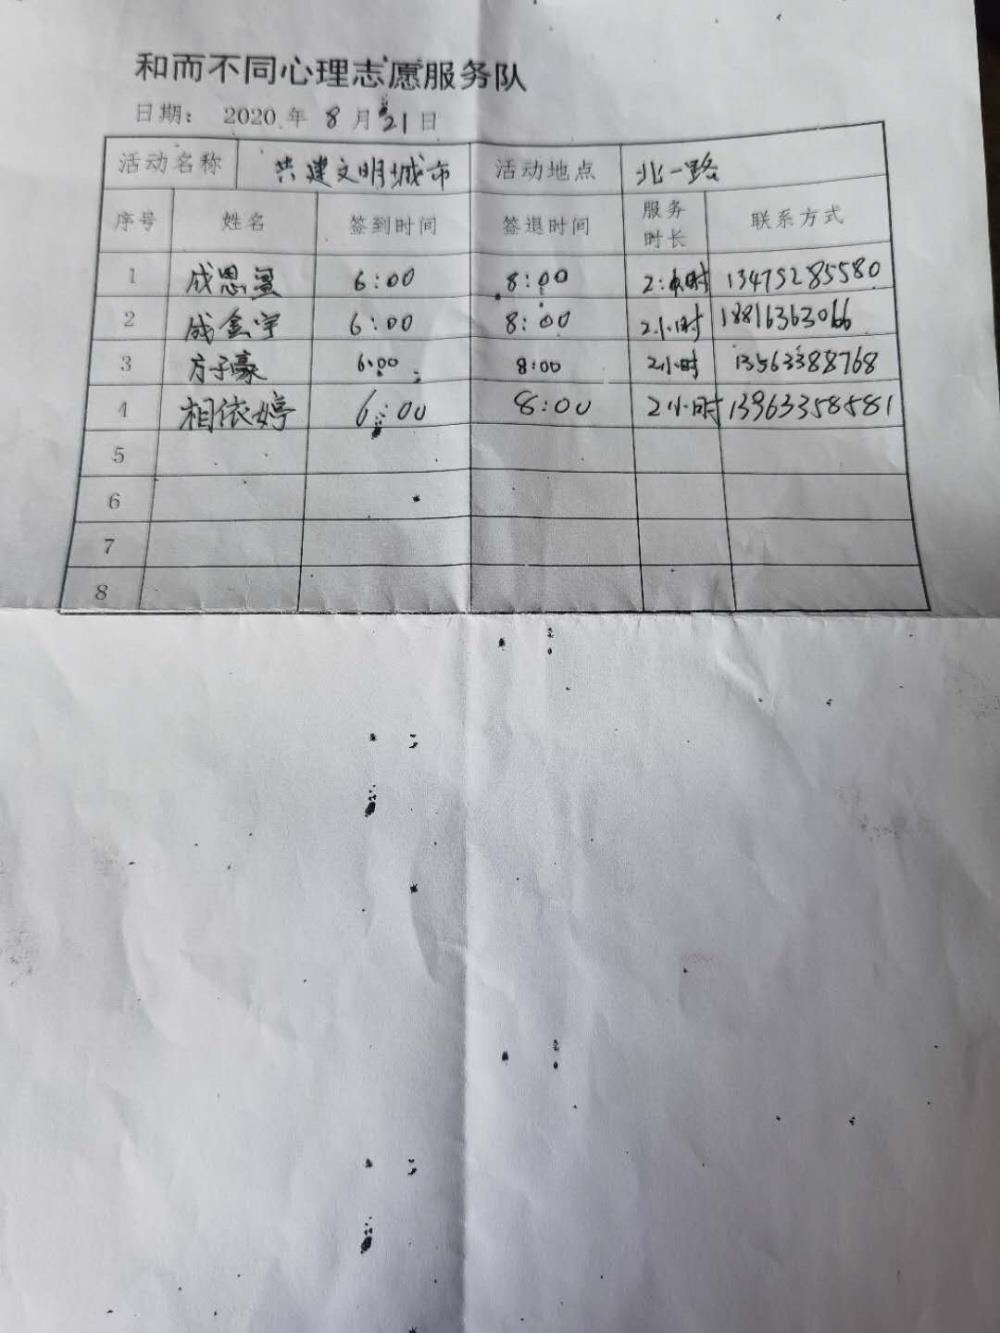 和而不同心理志愿服务队
日期： 2020 年 8 月 21 日
活动名称 共建文明城市 活动地点 北一路
序号 姓名 签到时间 签退时间 服务时长 联系方式
1 成思 6:00 8:00 2小时 13475285580
2 成金宇 6:00 8:00 2小时 18816363066
3 方子豪 6:00 8:00 2小时 13563388768
4 相依婷 6:00 8:00 2小时 13963358581
5
6
7
8